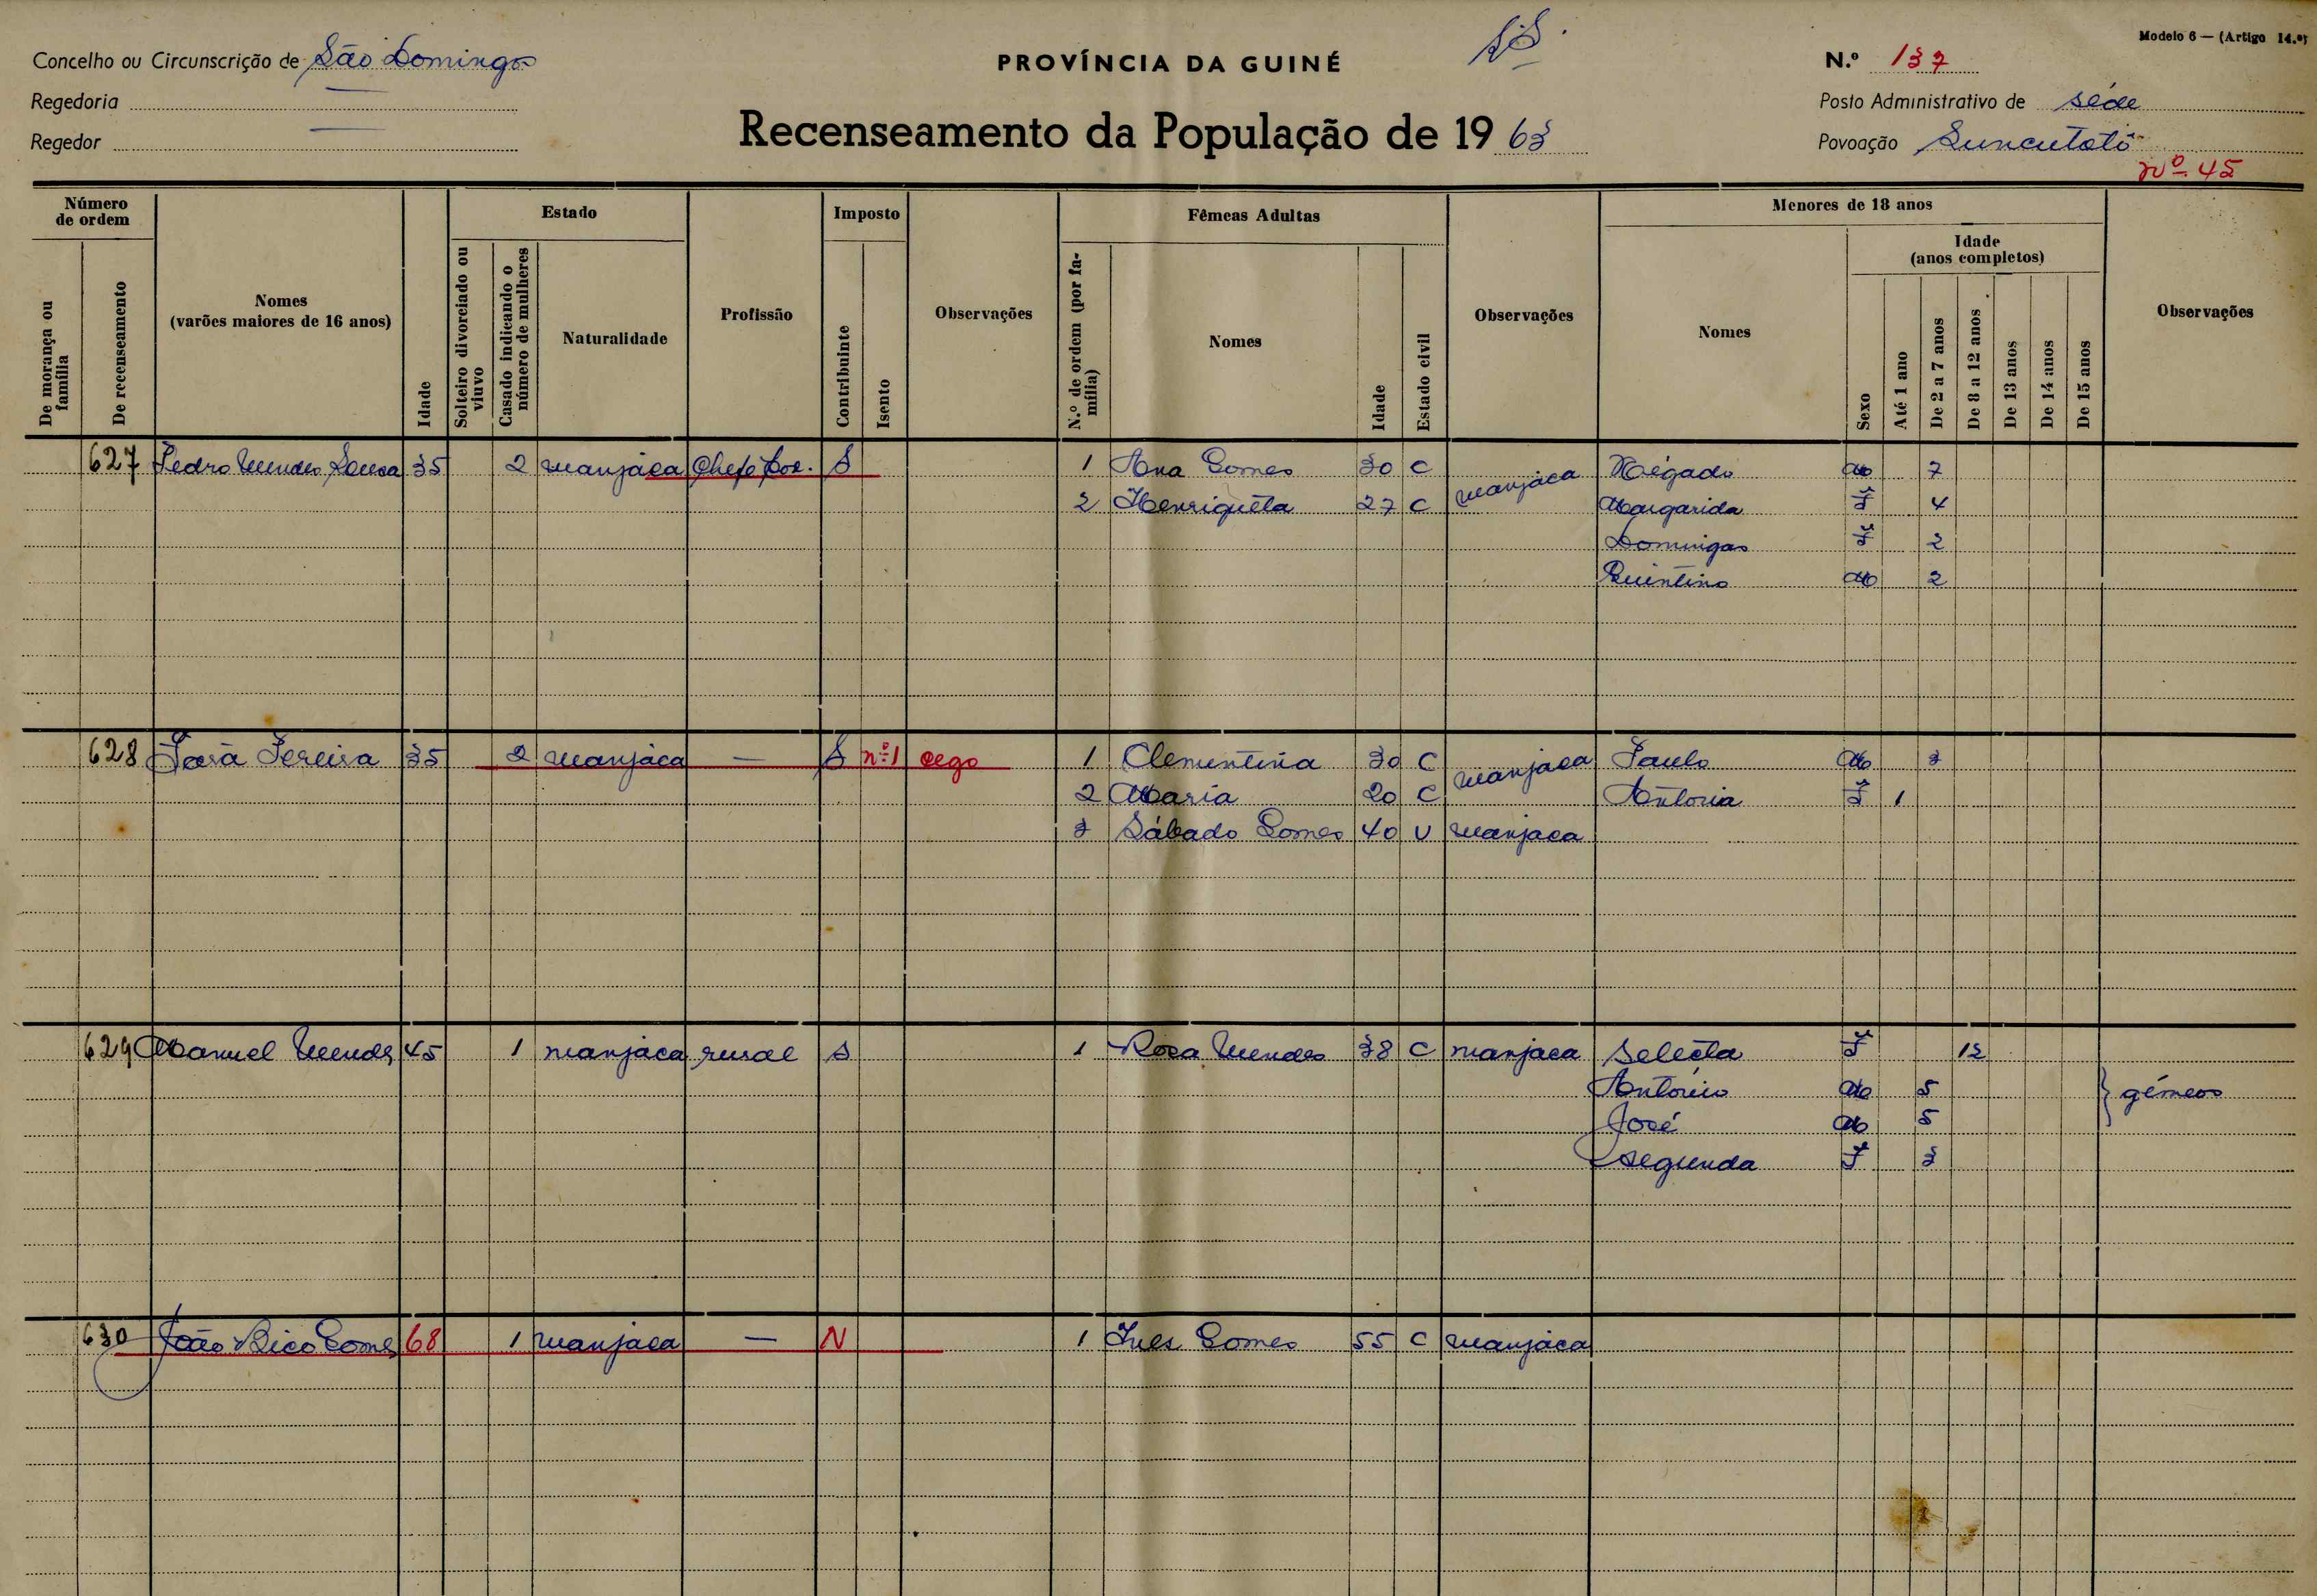 Modelo 6 — (Artigo 14.º)
Concelho ou Circunscrição de São Domingos
PROVÍNCIA DA GUINÉ
N.º 137
Regedoria —
Posto Administrativo de séde
Regedor —
Recenseamento da População de 1963
Povoação Suncutotô
nº 45
Número de ordem
De morança ou família
De recenseamento
Nomes (varões maiores de 16 anos)
Idade
Estado
Solteiro divorciado ou viuvo
Casado indicando o número de mulheres
Naturalidade
Profissão
Imposto
Contribuinte
Isento
Observações
Fêmeas Adultas
N.º de ordem (por família)
Nomes
Idade
Estado civil
Observações
Menores de 18 anos
Nomes
Sexo
Idade (anos completos)
Até 1 ano
De 2 a 7 anos
De 8 a 12 anos
De 13 anos
De 14 anos
De 15 anos
Observações
627 Pedro Mendes Sousa 35 2 manjaca Chefe S 1 Ana Gomes 30 C manjaca M 7
2 Henriquêta 27 C Margarida F 4
Domingas F 2
Quintino M 2
628 Pereira 35 2 manjaca — S nº1 cego 1 Clementina 30 C manjaca Paulo M 3
2 Maria 20 C Antonia F 1
3 Sábado Gomes 40 V manjaca
629 Manuel Mendes 45 1 manjaca rural S 1 Rosa Mendes 38 C manjaca Selecta F 12
António M 5 } gémeos
José M 5
Segunda F 3
630 João Bico Gomes 68 1 manjaca — N 1 Ines Gomes 55 C manjaca